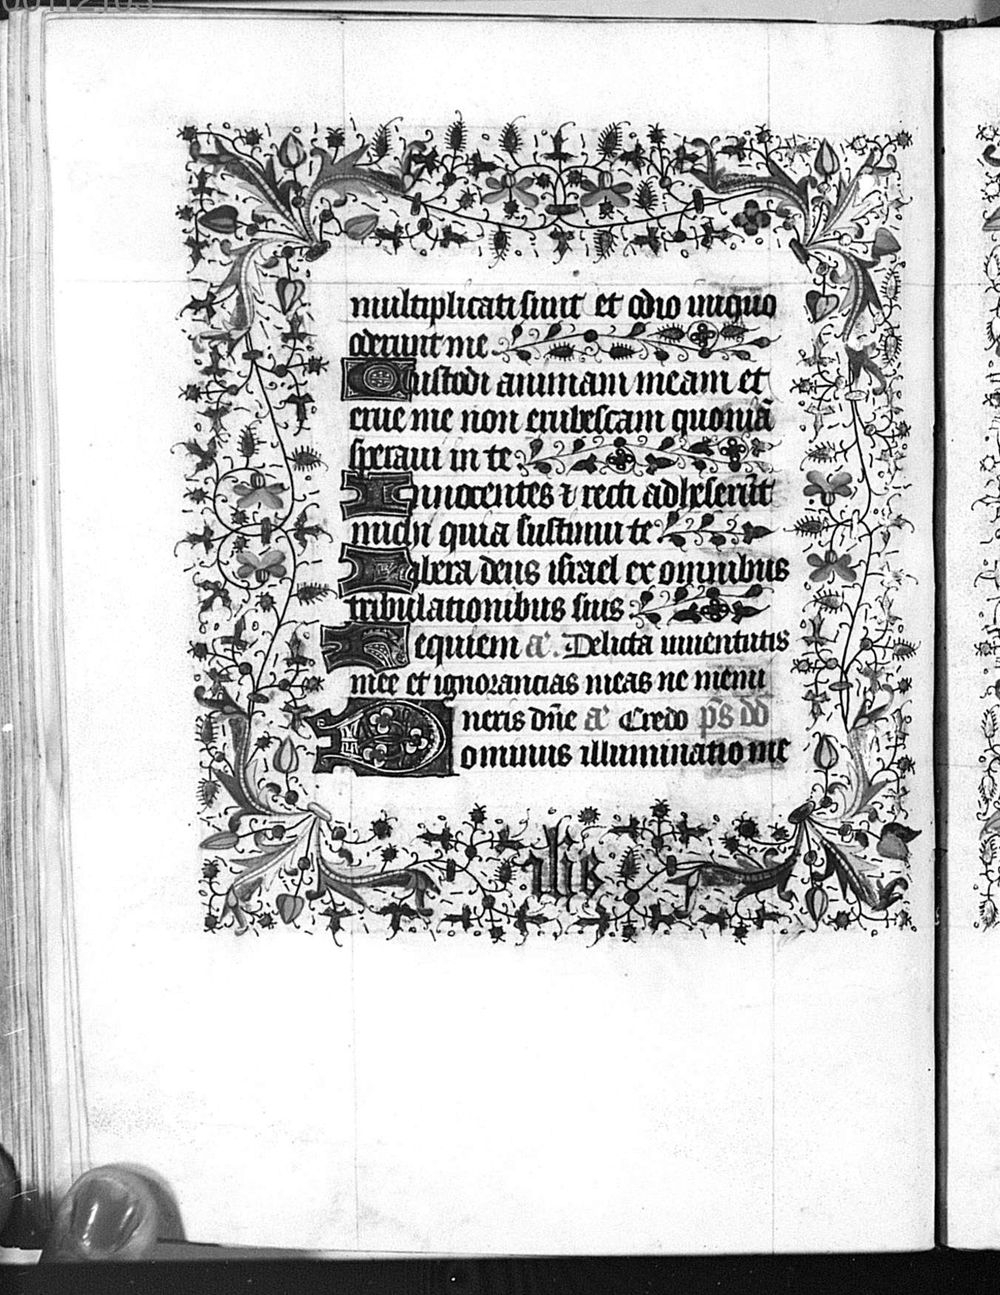 multiplicati sunt et odio iniquo
oderunt me
Custodi animam meam et
erue me non erubescam quoniā
speraui in te
Innocentes ⁊ recti adheserūt
michi quia sustinui te
Libera deus israel ex omnibus
tribulationibus suis
Requiem aͤ. Delicta iuuentutis
mee et ignorancias meas ne memi
neris dn̄e aͣ Credo p̄s dd̄
Dominus illuminatio me